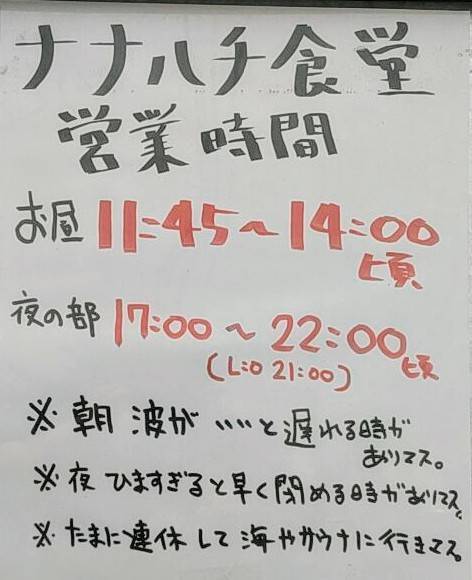 ナナハチ食堂
営業時間
お昼 11:45～14:00
頃
夜の部 17:00～22:00頃
(L:O 21:00)
※朝 波が 〃〃と遅れる時が
ありマス。
※夜 ひますぎると早く閉める時がありマス。
※たまに連休して海やサウナに行きマス。